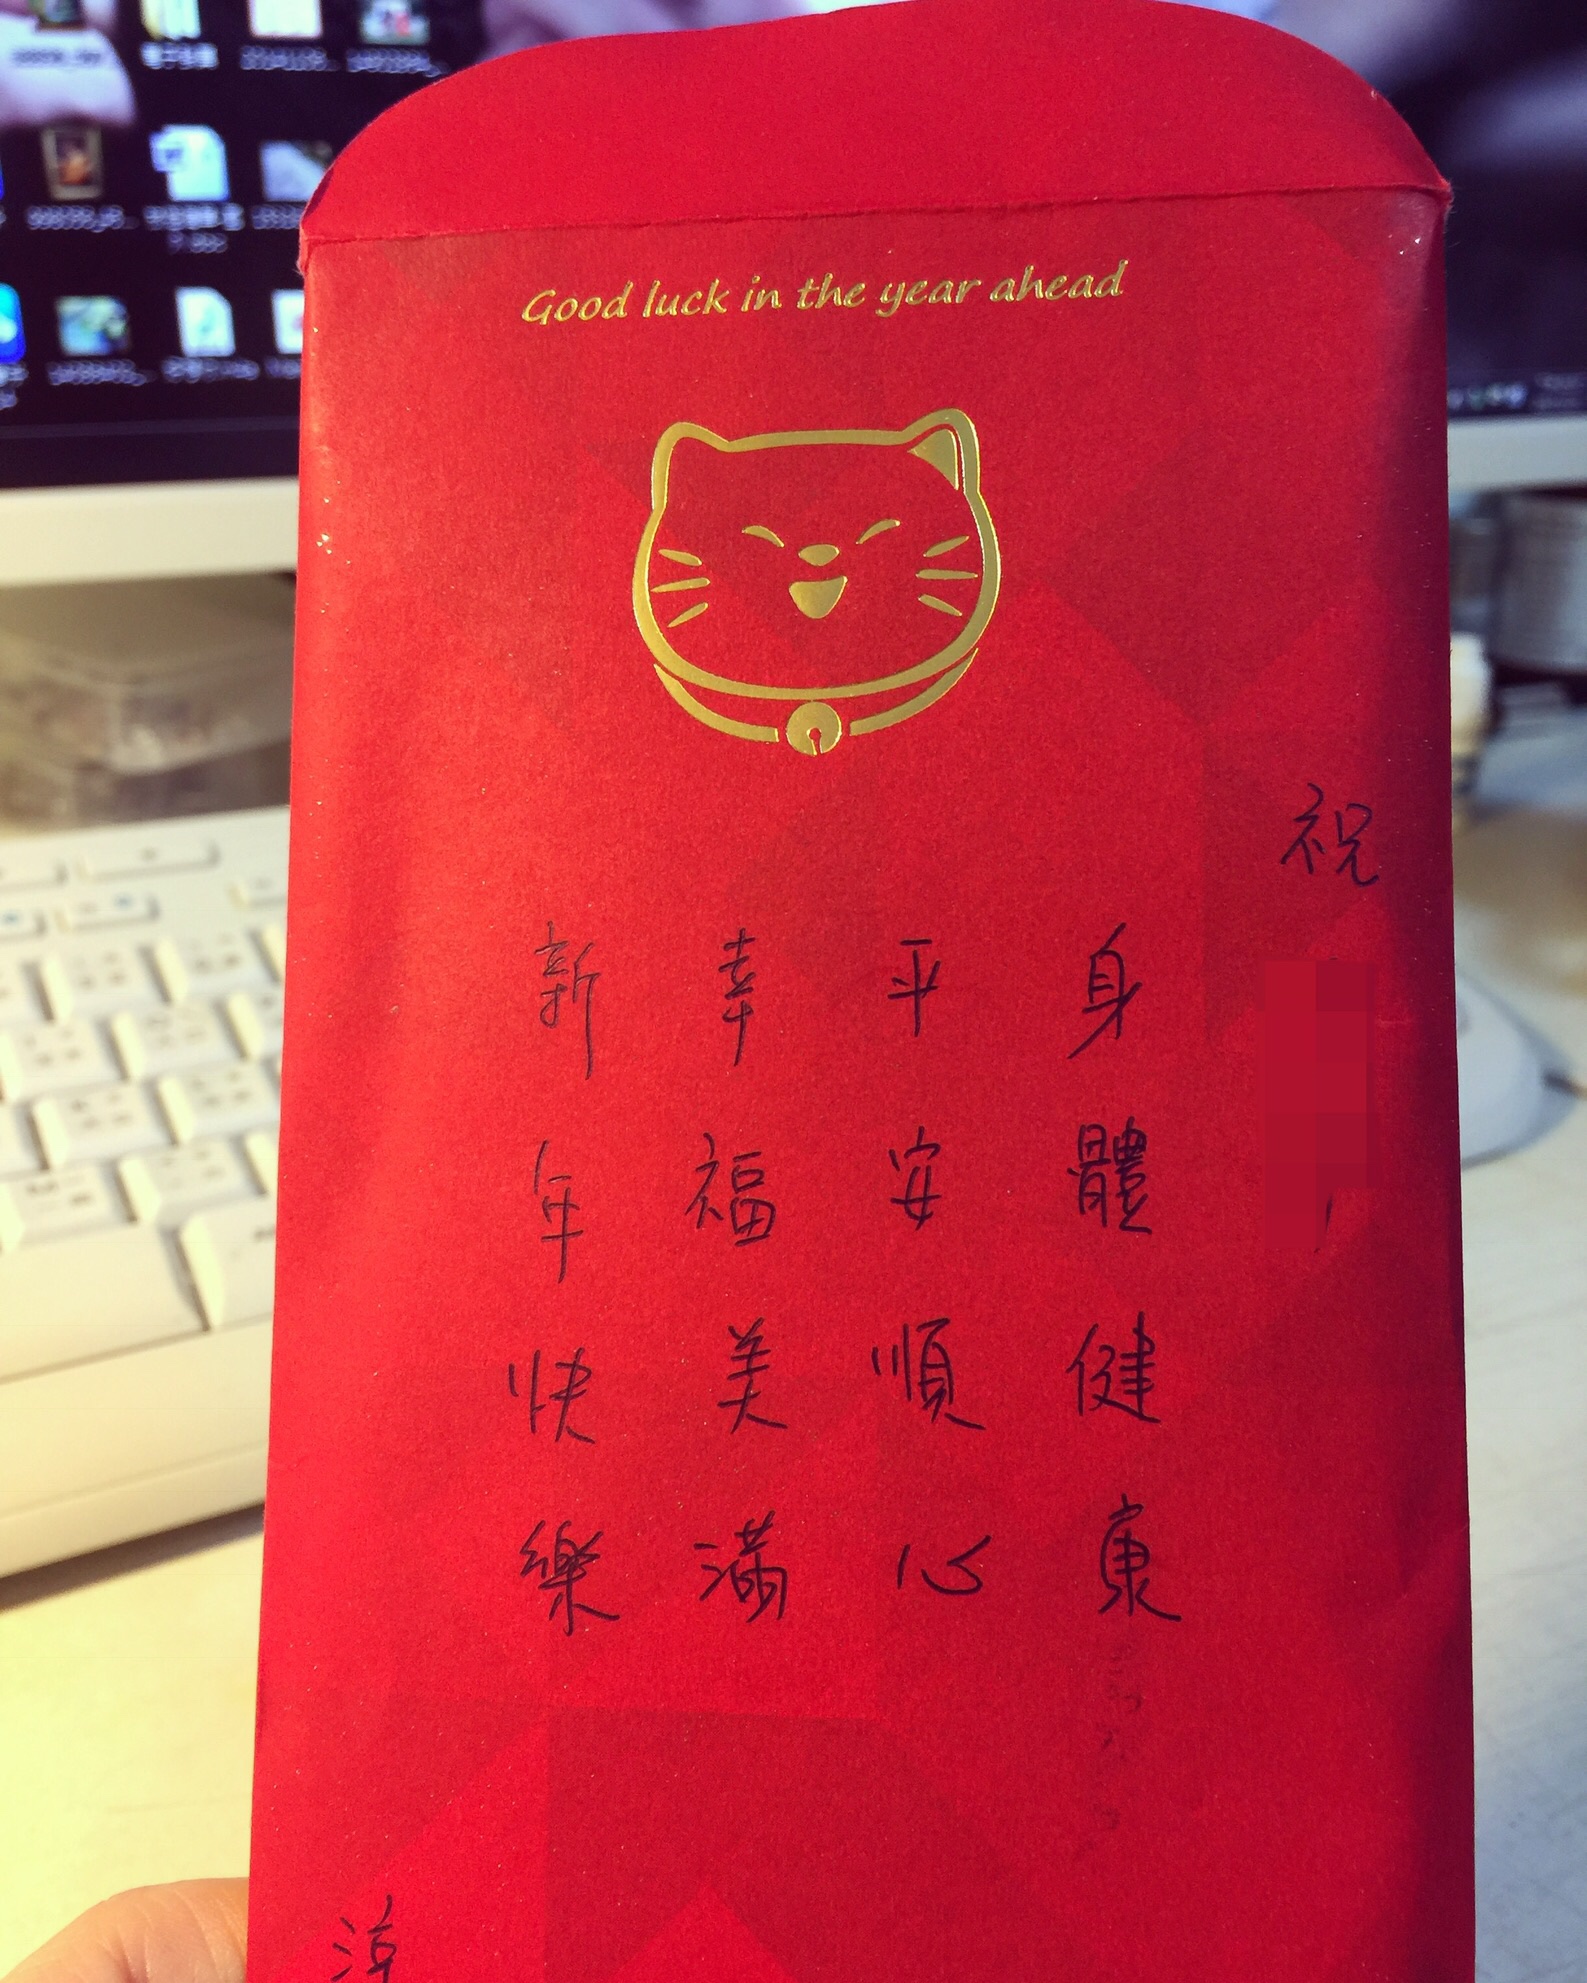 Good luck in the year ahead
祝
身體健康
平安順心
幸福美滿
新年快樂